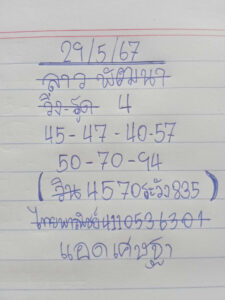 29/5/67
ลาว พัฒนา
วิ่ง-รูด 4
45-47-40-57
50-70-94
(วิน 4570 ระวัง 835)
ไทยพาณิชย์ 4110536301
แอดเศษฐา